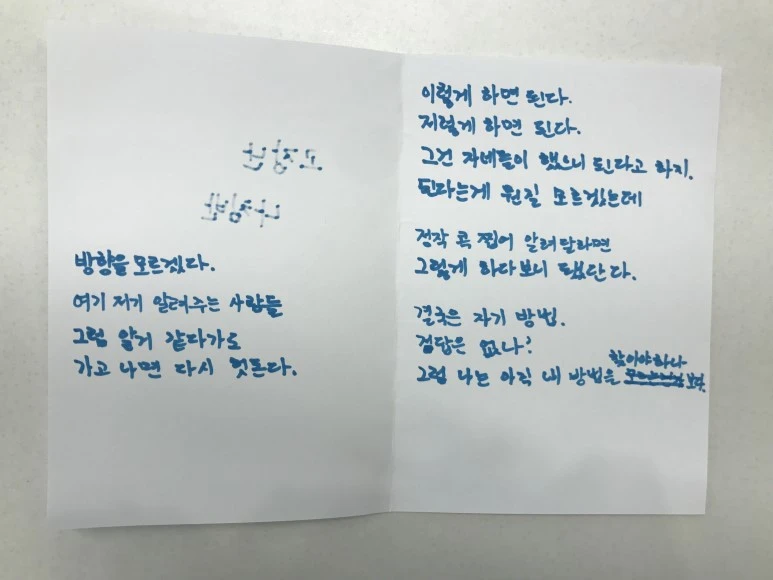 고장난
나침반
방향을 모르겠다.
여기 저기 알려주는 사람들
그럼 알거 같다가도
가고 나면 다시 헛돈다.
이렇게 하면 된다.
저렇게 하면 된다.
그건 자네들이 했으니 된다고 하지.
된다는게 뭔질 모르겠는데
정작 콕 찝어 알려달라면
그렇게 하다보니 됐단다.
결국은 자기 방법.
정답은 없나?
그럼 나는 아직 내 방법을 찾아야하나 보다.